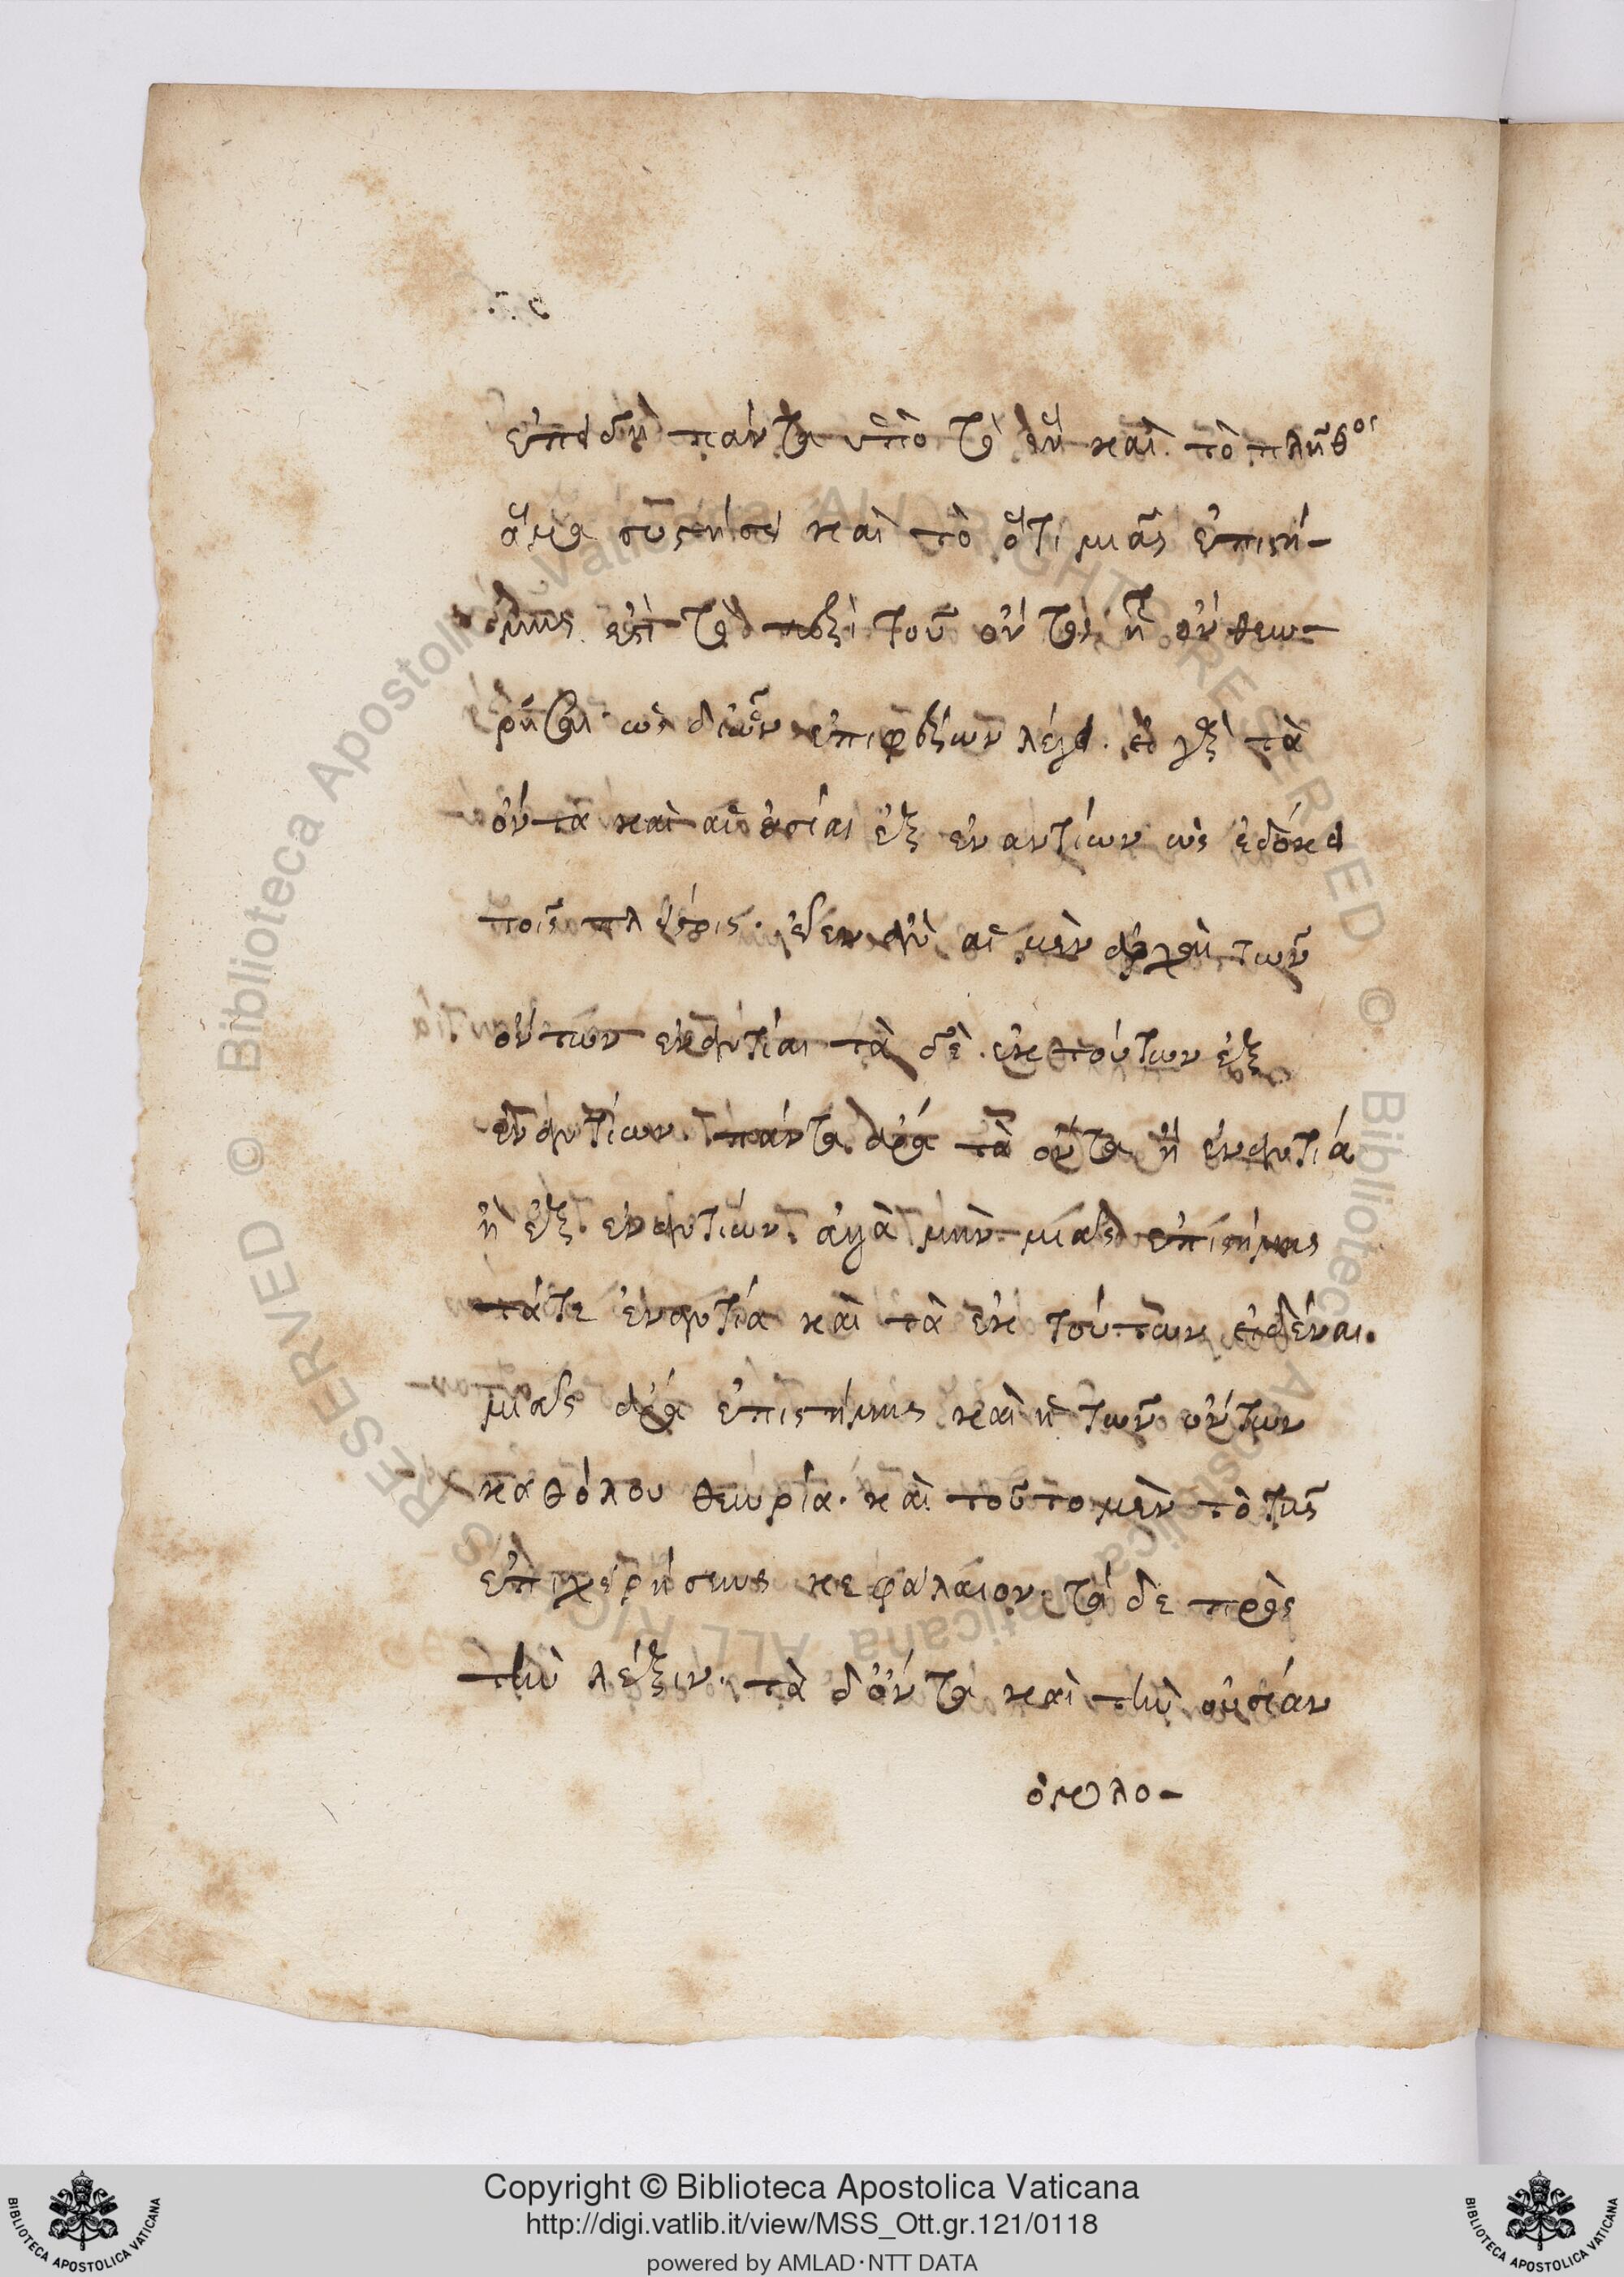 ἐπειδὴ πάντα ὑπὸ τὸ ἓν καὶ τὸ πλῆθος
ἅμα συστήσει καὶ τὸ ὅτι μιᾶς ἐπιστή-
μης ἐστὶ τὸ περὶ τοῦ ὄντος ᾗ ὂν θεω-
ρῆσαι· ὡς δι' ὧν ἐπιφέρων λέγει. εἰ γὰρ τὰ
ὄντα καὶ αἱ οὐσίαι ἐξ ἐναντίων ὡς ἐδόκει
τοῖς πλείστοις. εἶεν ἂν αἱ μὲν ἀρχαὶ τῶν
ὄντων ἐναντίαι τὰ δὲ ἐκ τούτων ἐξ
ἐναντίων. πάντα ἄρα τὰ ὄντα ἢ ἐναντία
ἢ ἐξ ἐναντίων. ἀλλὰ μὴν μιᾶς ἐπιστήμης
τά τε ἐναντία καὶ τὰ ἐκ τούτων εἰδέναι.
μιᾶς ἄρα ἐπιστήμης καὶ ἡ τῶν ὄντων
καθόλου θεωρία. καὶ τοῦτο μὲν τὸ τῆς
ἐπιχειρήσεως κεφάλαιον. τὰ δὲ πρὸς
τὴν λέξιν. τὰ δ' ὄντα καὶ τὴν οὐσίαν
ὁμολο-
Copyright © Biblioteca Apostolica Vaticana
http://digi.vatlib.it/view/MSS_Ott.gr.121/0118
powered by AMLAD·NTT DATA
BIBLIOTECA APOSTOLICA VATICANA
BIBLIOTECA APOSTOLICA VATICANA
Biblioteca Apostolica Vaticana ALL RIGHTS RESERVED ©
Biblioteca Apostolica Vaticana ALL RIGHTS RESERVED ©